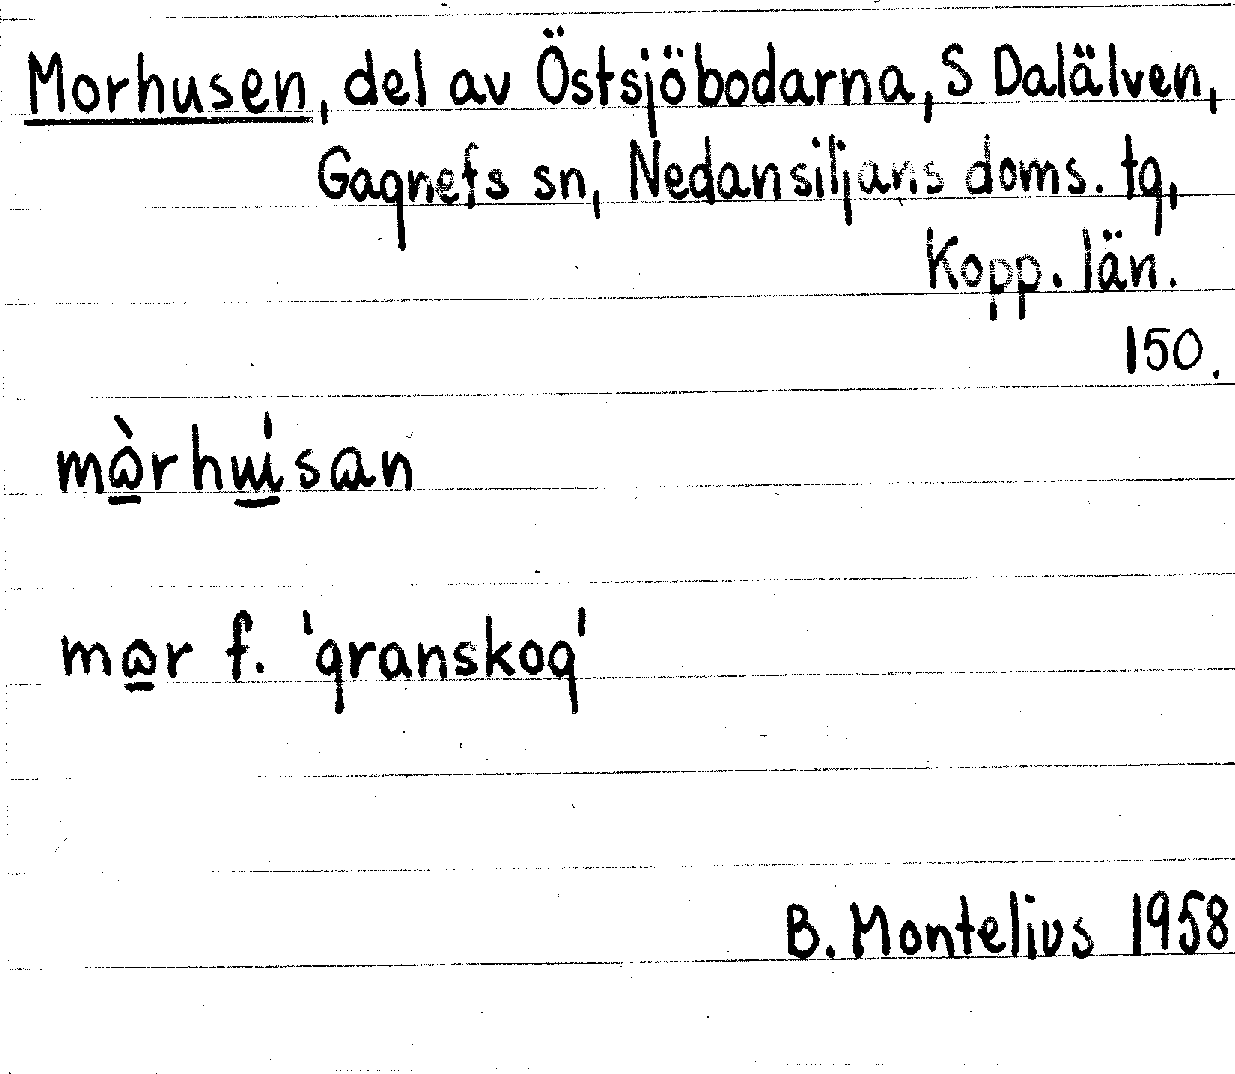 Morhusen, del av Östsjöbodarna, S Dalälven,
Gagnefs sn, Nedansiljans doms. tg,
Kopp. län.
150.
màrhu̍san
mar f. 'granskog'
B. Montelius 1958